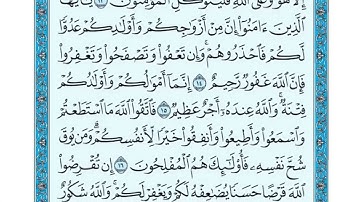 إِلَّا هُوَ وَعَلَى ٱللَّهِ فَلْيَتَوَكَّلِ ٱلْمُؤْمِنُونَ ١٣ يَٰٓأَيُّهَا
ٱلَّذِينَ ءَامَنُوٓا۟ إِنَّ مِنْ أَزْوَٰجِكُمْ وَأَوْلَٰدِكُمْ عَدُوًّا
لَّكُمْ فَٱحْذَرُوهُمْ وَإِن تَعْفُوا۟ وَتَصْفَحُوا۟ وَتَغْفِرُوا۟
فَإِنَّ ٱللَّهَ غَفُورٌ رَّحِيمٌ ١٤ إِنَّمَآ أَمْوَٰلُكُمْ وَأَوْلَٰدُكُمْ
فِتْنَةٌ وَٱللَّهُ عِندَهُۥٓ أَجْرٌ عَظِيمٌ ١٥ فَٱتَّقُوا۟ ٱللَّهَ مَا ٱسْتَطَعْتُمْ
وَٱسْمَعُوا۟ وَأَطِيعُوا۟ وَأَنفِقُوا۟ خَيْرًا لِّأَنفُسِكُمْ وَمَن يُوقَ
شُحَّ نَفْسِهِۦ فَأُو۟لَٰٓئِكَ هُمُ ٱلْمُفْلِحُونَ ١٦ إِن تُقْرِضُوا۟
ٱللَّهَ قَرْضًا حَسَنًا يُضَٰعِفْهُ لَكُمْ وَيَغْفِرْ لَكُمْ وَٱللَّهُ شَكُورٌ